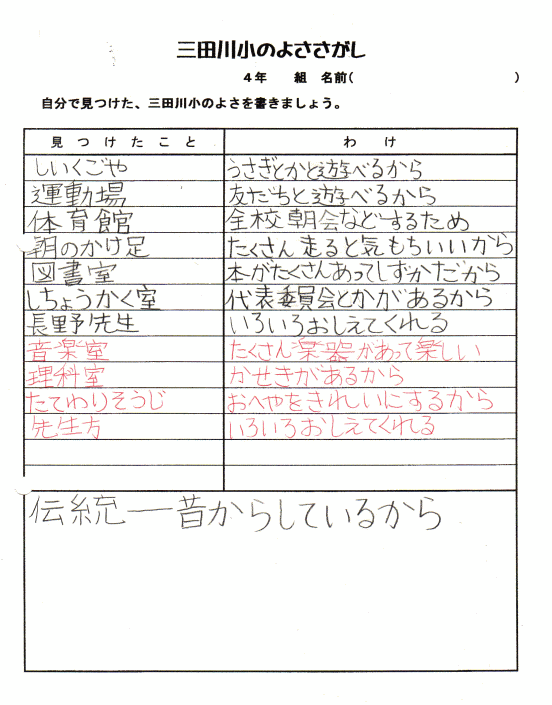 三田川小のよささがし
4年 組 名前( )
自分で見つけた、三田川小のよさを書きましょう。
見つけたこと わけ
しいくごや うさぎとかと遊べるから
運動場 友だちと遊べるから
体育館 全校朝会などするため
朝のかけ足 たくさん走ると気もちいいから
図書室 本がたくさんあってしずかだから
しちょうかく室 代表委員会とかがあるから
長野先生 いろいろおしえてくれる
音楽室 たくさん楽器があって楽しい
理科室 かせきがあるから
たてわりそうじ おへやをきれいにするから
先生方 いろいろおしえてくれる
伝統―昔からしているから